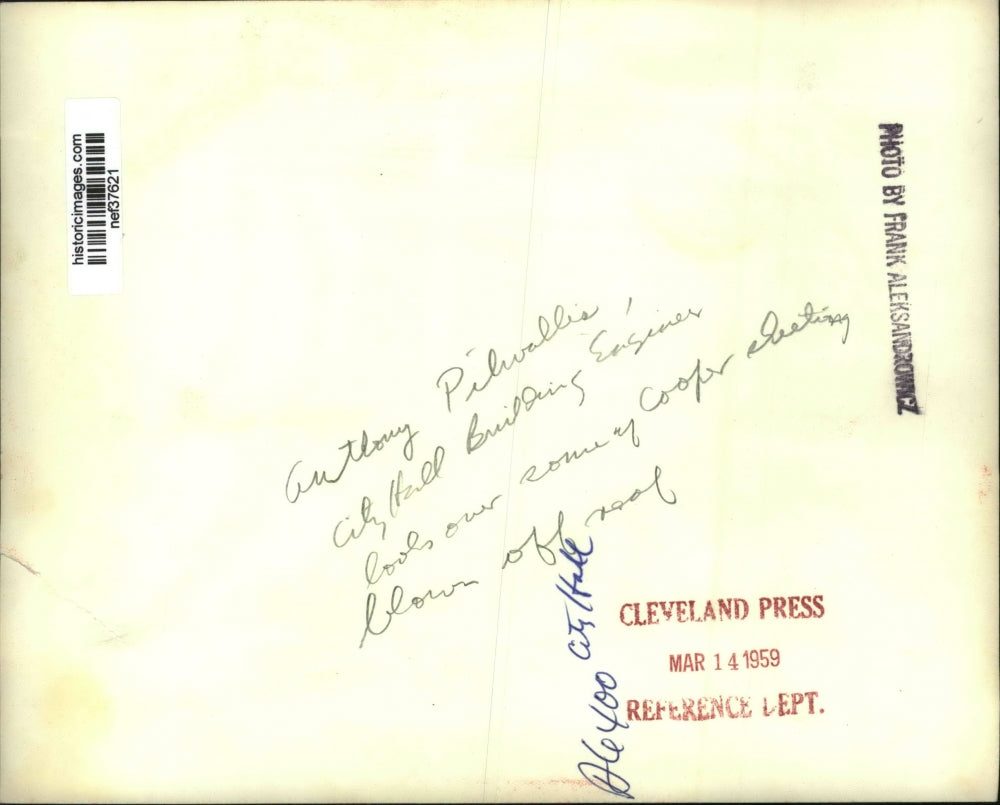 historicimages.com
nef37621
PHOTO BY FRANK ALEKSANDROWICZ
Anthony Pilwallis,
City Hall Building Engineer
looks over some of Cooper sheeting
blown off roof
City Hall
CLEVELAND PRESS
MAR 14 1959
REFERENCE DEPT.